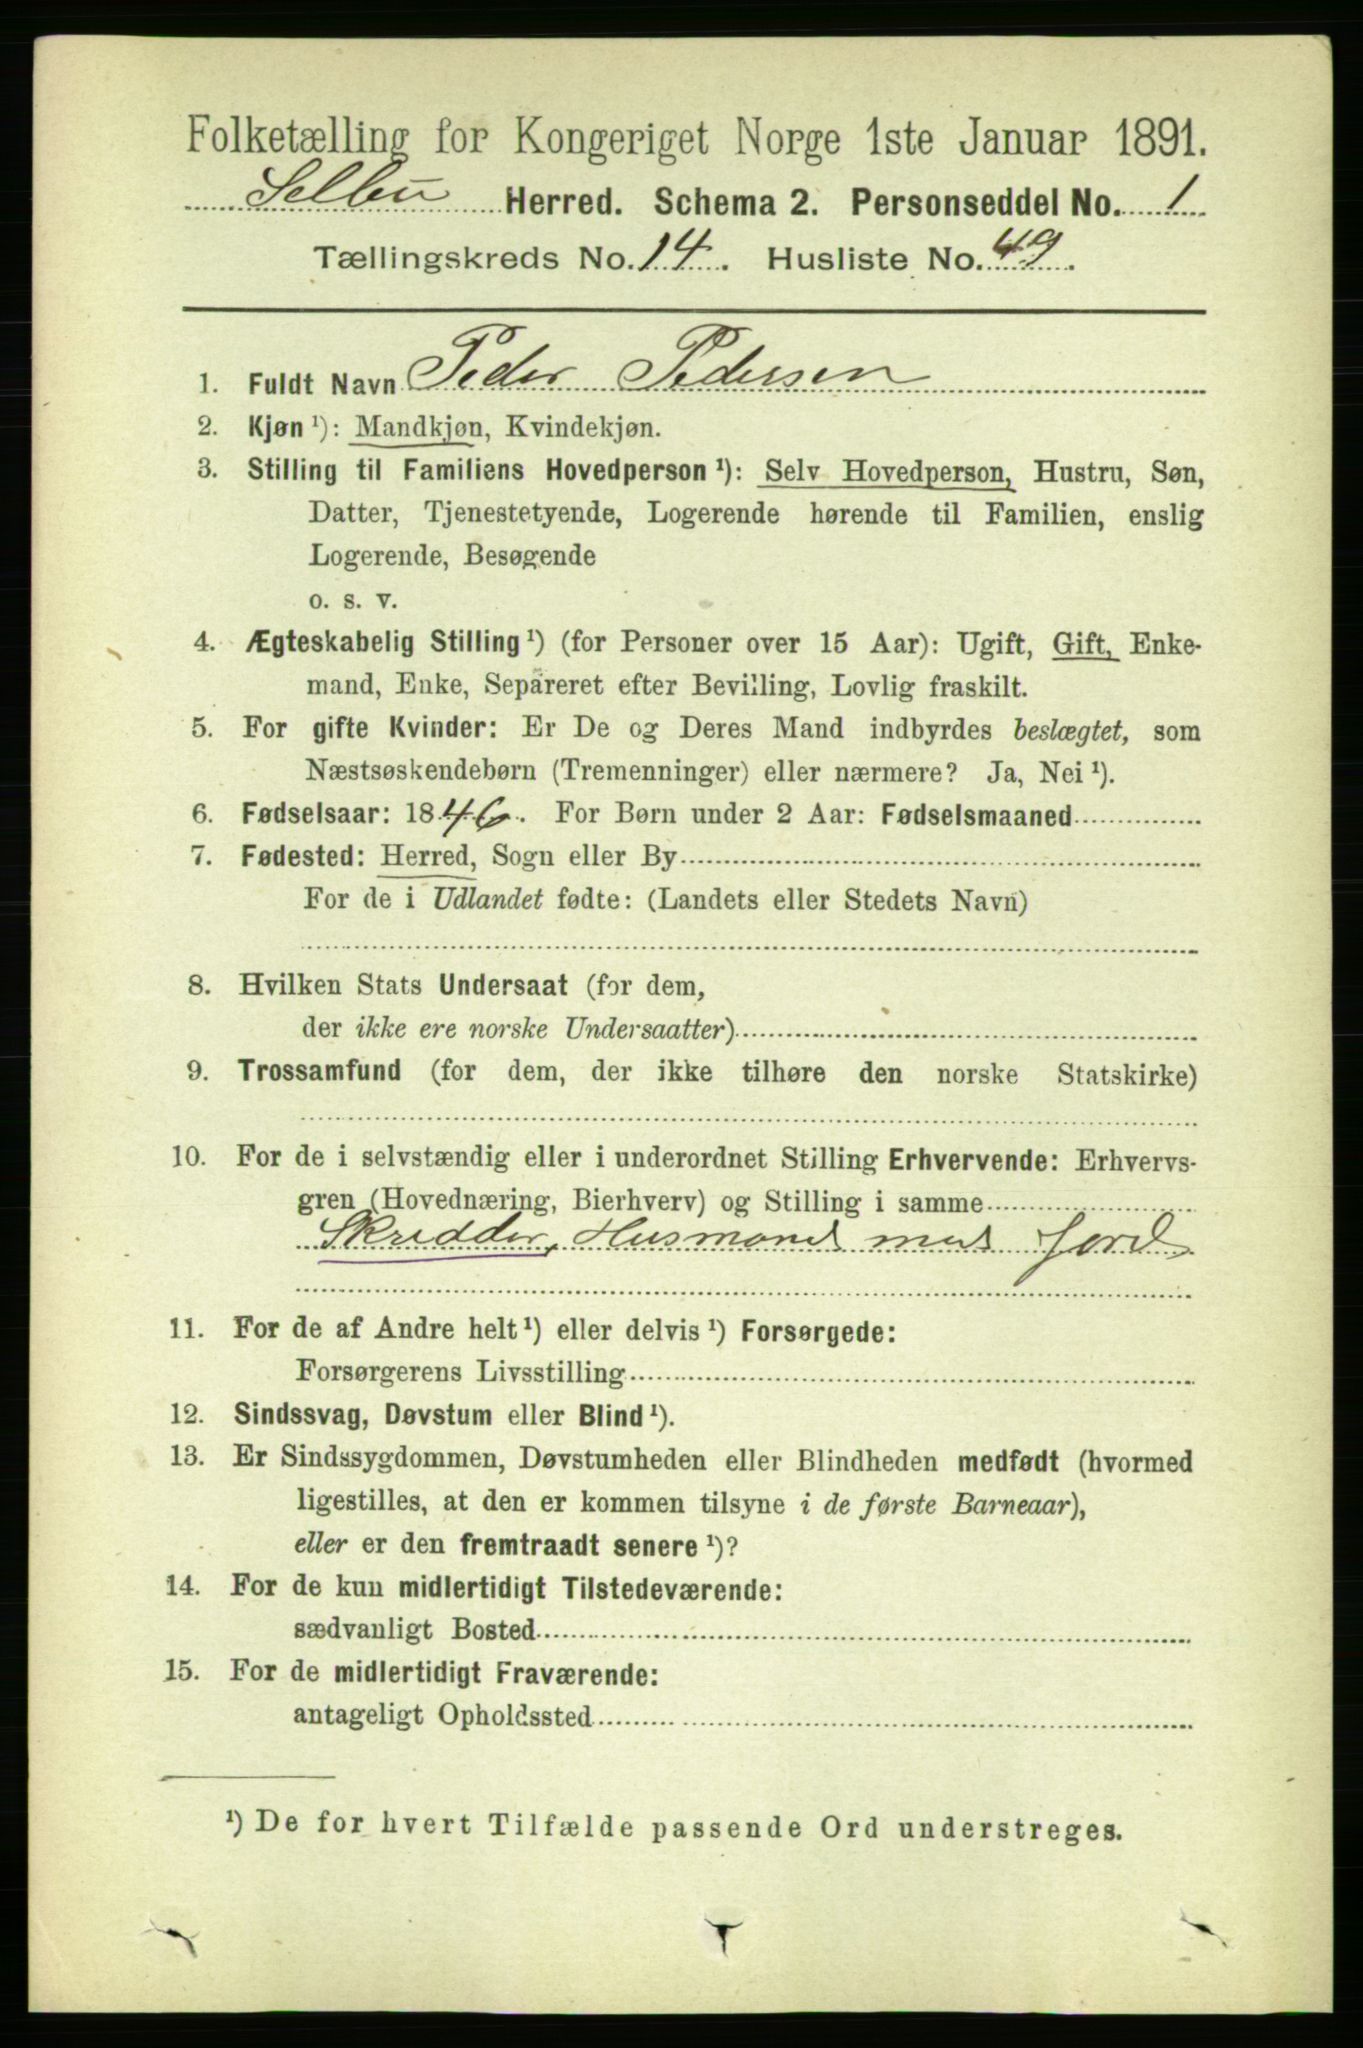 Folketælling for Kongeriget Norge 1ste Januar 1891.
Selbu Herred. Schema 2. Personseddel No. 1
Tællingskreds No. 14. Husliste No. 49.
1. Fuldt Navn Peder Pedersen
2. Kjøn ¹): Mandkjøn, Kvindekjøn.
3. Stilling til Familiens Hovedperson ¹): Selv Hovedperson, Hustru, Søn,
Datter, Tjenestetyende, Logerende hørende til Familien, enslig
Logerende, Besøgende
o. s. v.
4. Ægteskabelig Stilling ¹) (for Personer over 15 Aar): Ugift, Gift, Enke-
mand, Enke, Separeret efter Bevilling, Lovlig fraskilt.
5. For gifte Kvinder: Er De og Deres Mand indbyrdes beslægtet, som
Næstsøskendebørn (Tremenninger) eller nærmere? Ja, Nei ¹).
6. Fødselsaar: 1846. For Børn under 2 Aar: Fødselsmaaned
7. Fødested: Herred, Sogn eller By
For de i Udlandet fødte: (Landets eller Stedets Navn)
8. Hvilken Stats Undersaat (for dem,
der ikke ere norske Undersaatter)
9. Trossamfund (for dem, der ikke tilhøre den norske Statskirke)
10. For de i selvstændig eller i underordnet Stilling Erhvervende: Erhvervs-
gren (Hovednæring, Bierhverv) og Stilling i samme
Skredder, Husmand med Jord
11. For de af Andre helt ¹) eller delvis ¹) Forsørgede:
Forsørgerens Livsstilling
12. Sindssvag, Døvstum eller Blind ¹).
13. Er Sindssygdommen, Døvstumheden eller Blindheden medfødt (hvormed
ligestilles, at den er kommen tilsyne i de første Barneaar),
eller er den fremtraadt senere ¹)?
14. For de kun midlertidigt Tilstedeværende:
sædvanligt Bosted
15. For de midlertidigt Fraværende:
antageligt Opholdssted
¹) De for hvert Tilfælde passende Ord understreges.